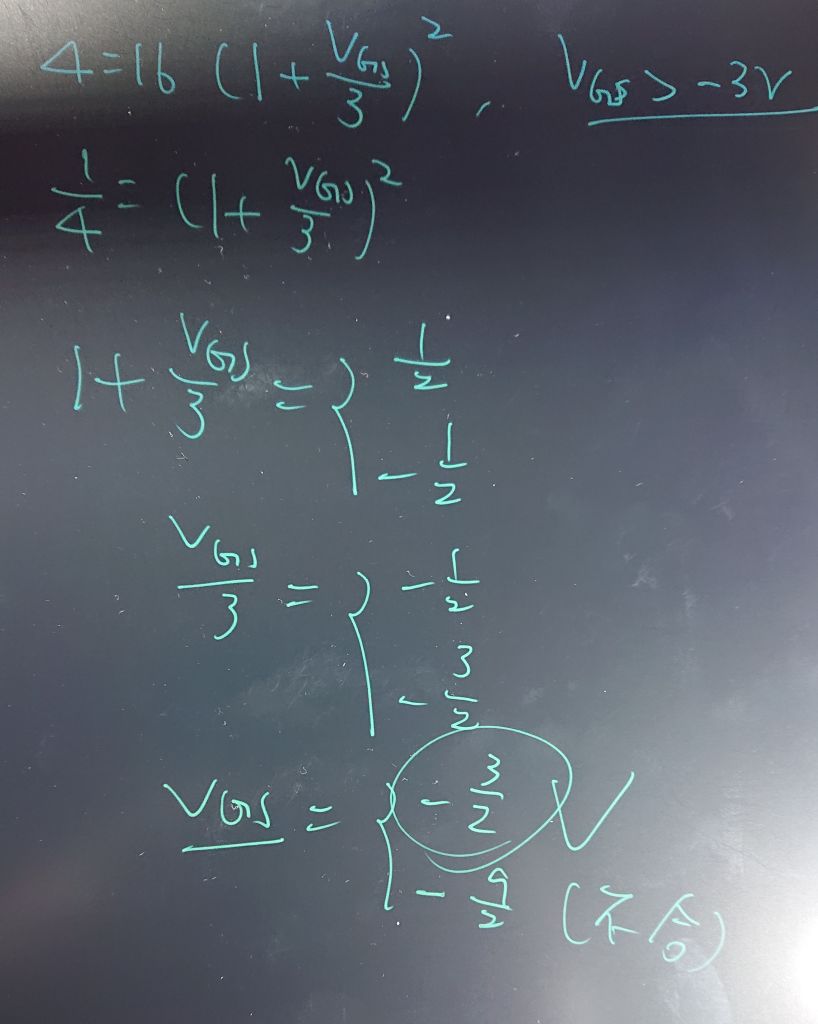 4=16 (1+ V_GS/3)², V_GS > -3V
1/4 = (1+ V_GS/3)²
1+ V_GS/3 = { 1/2
- 1/2
V_GS/3 = { - 1/2
- 3/2
V_GS = { - 3/2 V
- 9/2 (不合)